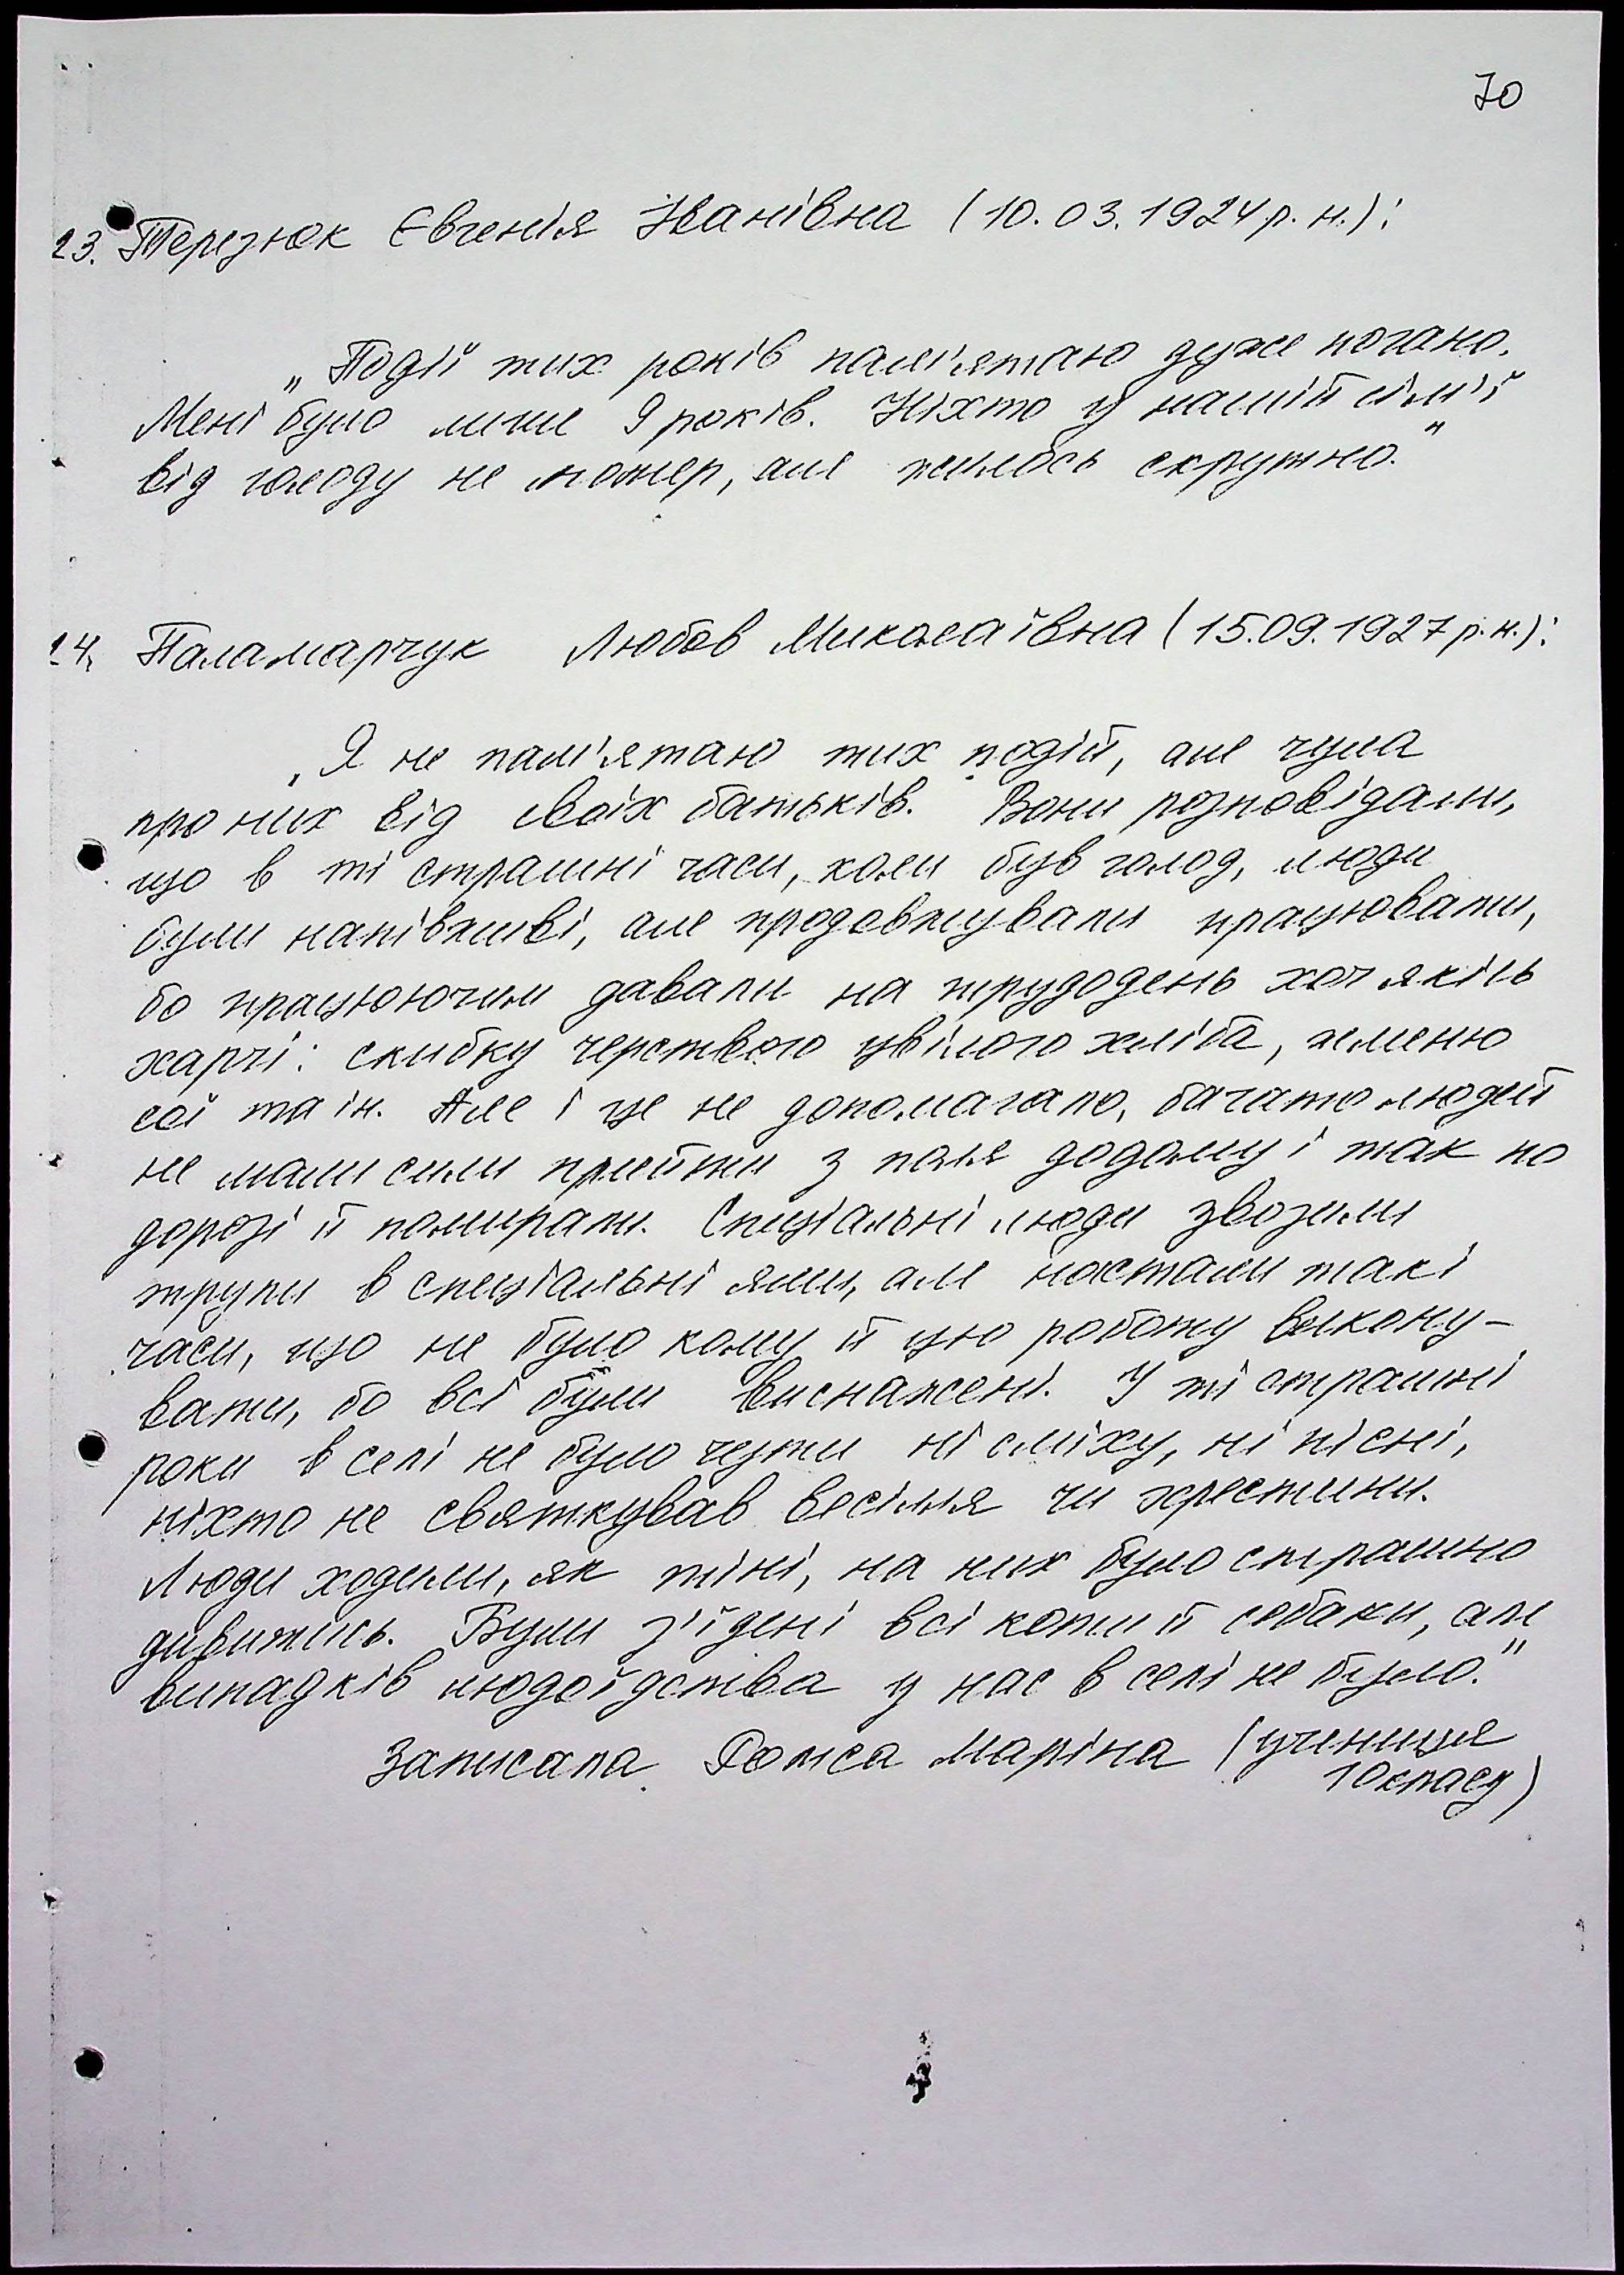 70
23. Терезюк Євгенія Іванівна (10.03.1924 р. н.):
„Події тих років пам'ятаю дуже погано.
Мені було лише 9 років. Ніхто у нашій сім'ї
від голоду не помер, але жилось скрутно."
24. Паламарчук Любов Миколаївна (15.09.1927 р. н.):
„Я не пам'ятаю тих подій, але чула
про них від своїх батьків. Вони розповідали,
що в ті страшні часи, коли був голод, люди
були напівживі, але продовжували працювати,
бо працюючим давали на трудодень хоч якісь
харчі: скибку черствого цвілого хліба, жменю
сої та ін. Але і це не допомагало, багато людей
не мали сили прийти з поля додому і так по
дорозі й помирали. Спеціальні люди звозили
трупи в спеціальні ями, але настали такі
часи, що не було кому й цю роботу викону-
вати, бо всі були виснажені. У ті страшні
роки в селі не було чути ні сміху, ні пісні,
ніхто не святкував весілля чи хрестини.
Люди ходили, як тіні, на них було страшно
дивитись. Були з'їдені всі коти й собаки, але
випадків людоїдства у нас в селі не було."
Записала Маріна (учениця
10 класу)